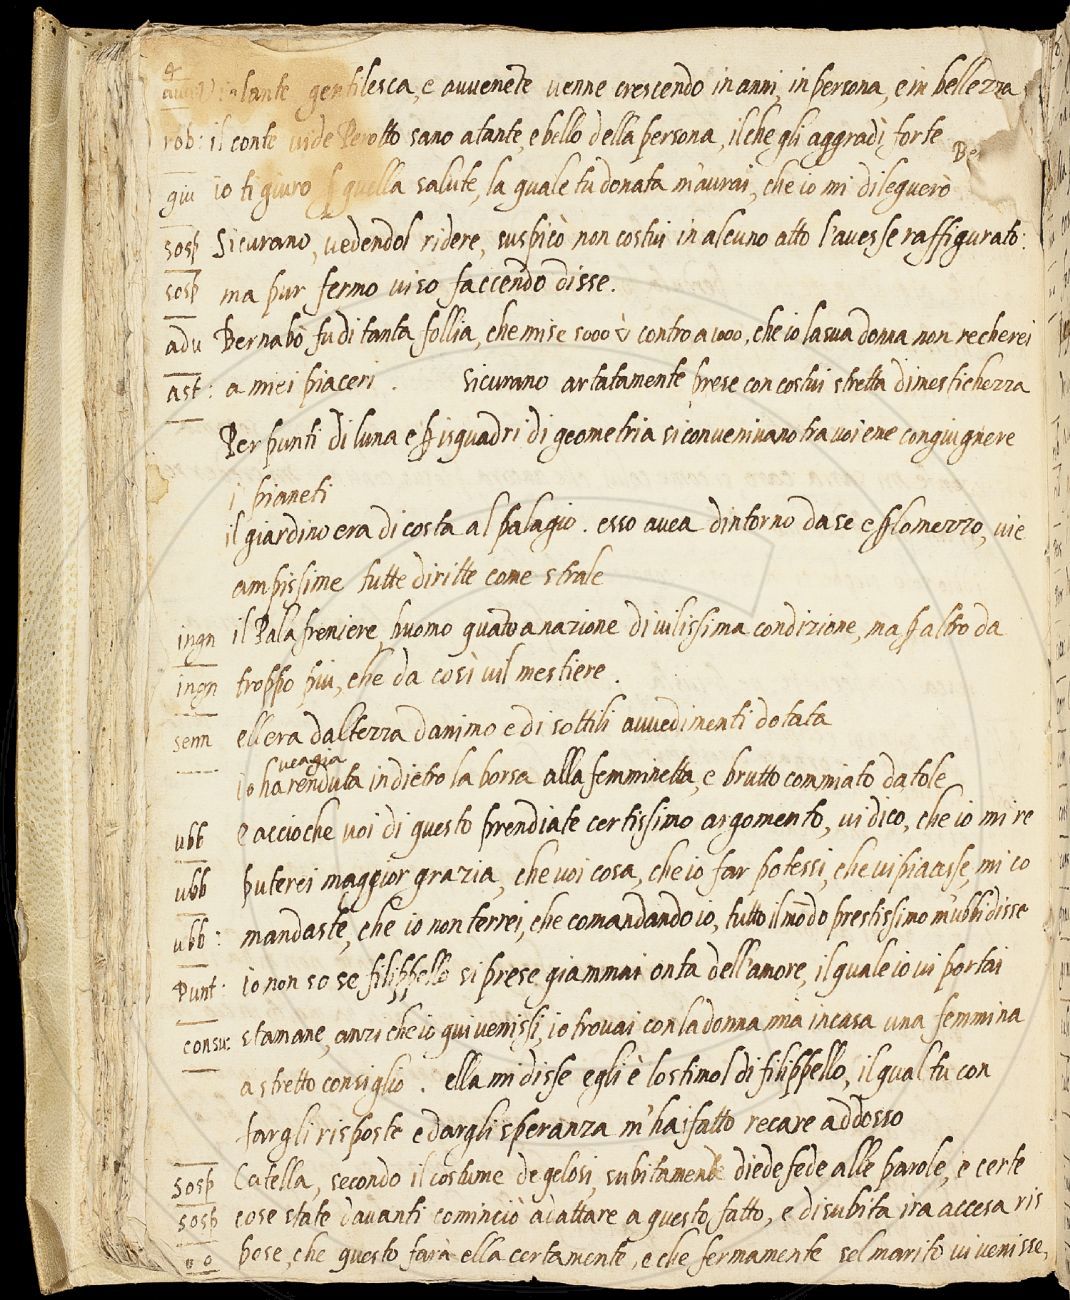 Violante gentilesca, e avvenẽte venne crescendo in anni, in persona, e in bellezza
rob: il conte vide Perotto sano atante, e bello della persona, il che gli aggradì forte
giu io ti giuro quella salute, la quale tu donata m'aurai, che io mi dileguerò
sosp Sicurano, vedendol ridere, suspicò non costui in alcuno atto l'avesse raffigurato:
sosp ma pur fermo viso faccendo disse.
adu Bernabò fu di tanta follia, che mise 5000 contro a 1000, che io la sua donna non recherei
ast: a miei piaceri. Sicurano artatamente prese con costui stretta dimestichezza
Per punti di luna e isquadri di geometria si convenivano tra voi e me congiugnere
i pianeti
il giardino era di costa al palagio. esso avea dintorno da se e lo mezzo, vie
ampissime tutte diritte come strale
ingn il Palafreniere huomo quãto a nazione di vilissima condizione, ma altro da
ingn troppo più, che da così vil mestiere.
senn ell'era d'altezza d'animo e di sottili avvedimenti dotata
io ha renduta indietro la borsa alla femminetta, e brutto commiato datole
ubb e accioche voi di questo prendiate certissimo argomento, vi dico, che io mi re
ubb puterei maggior grazia, che voi cosa, che io far potessi, che vi piacesse, mi co
ubb: mandaste, che io non terrei, che comandando io, tutto il mõdo prestissimo m'ubbidisse
Punt: io non so se filippello si prese giammai onta dell'amore, il quale io vi portai
consu: stamane, anzi che io qui venissi, io trovai con la donna mia in casa una femmina
a stretto consiglio. ella mi disse egli è lo stimol di filippello, il qual tu con
fargli risposte e dargli speranza m'hai fatto recare addosso
sosp Catella, secondo il costume de gelosi, subitamente diede fede alle parole, e certe
sosp cose state davanti cominciò adattare a questo fatto, e di subita ira accesa ris
pose, che questo farà ella certamente, e che fermamente se l marito vi venisse,